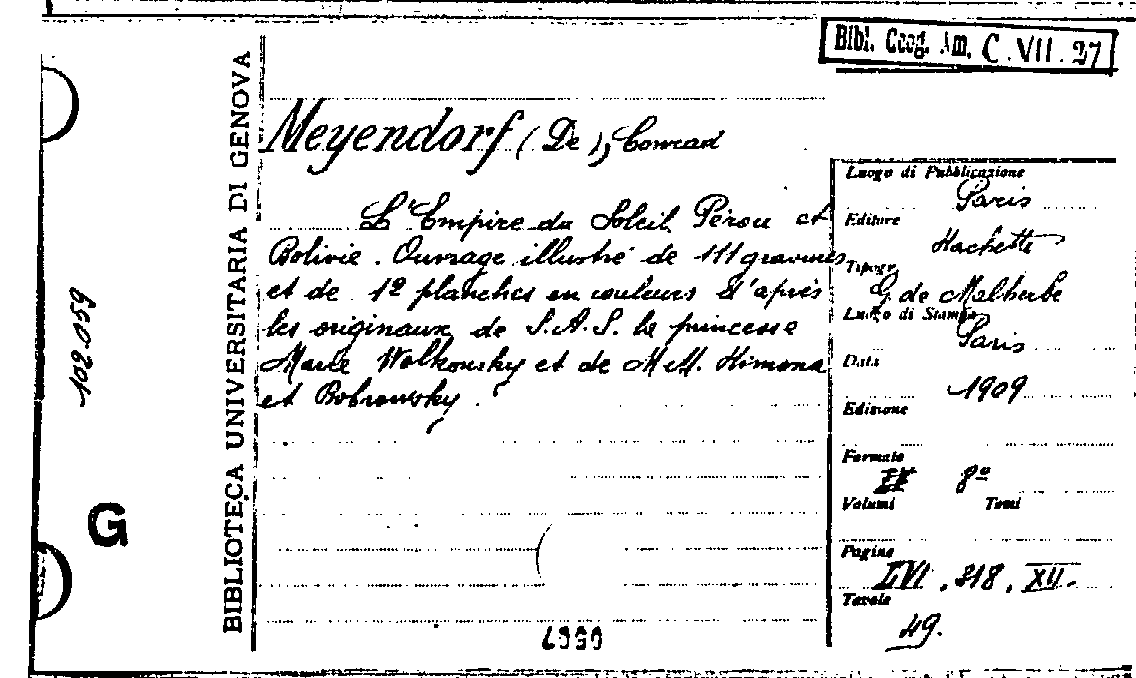 Bibl. Geog. Am. C. VII. 27
Meyendorf (De), Conrad
L'Empire du Soleil Pérou et
Bolivie. Ouvrage illustré de 111 gravures
et de 12 planches en couleurs d'après
les originaux de S.A.S. la princesse
Marie Wolkonsky et de MeM. Himona
et Bobrowsky.
Luogo di Pubblicazione
Paris
Editore
Hachette
Tipogr.
G. de Malherbe
Luogo di Stampa
Paris
Data
1909
Edizione
Formato
8º
Volumi Tomi
Pagine
LVI. 318. XII.
Tavole
49.
BIBLIOTECA UNIVERSITARIA DI GENOVA
102059
G